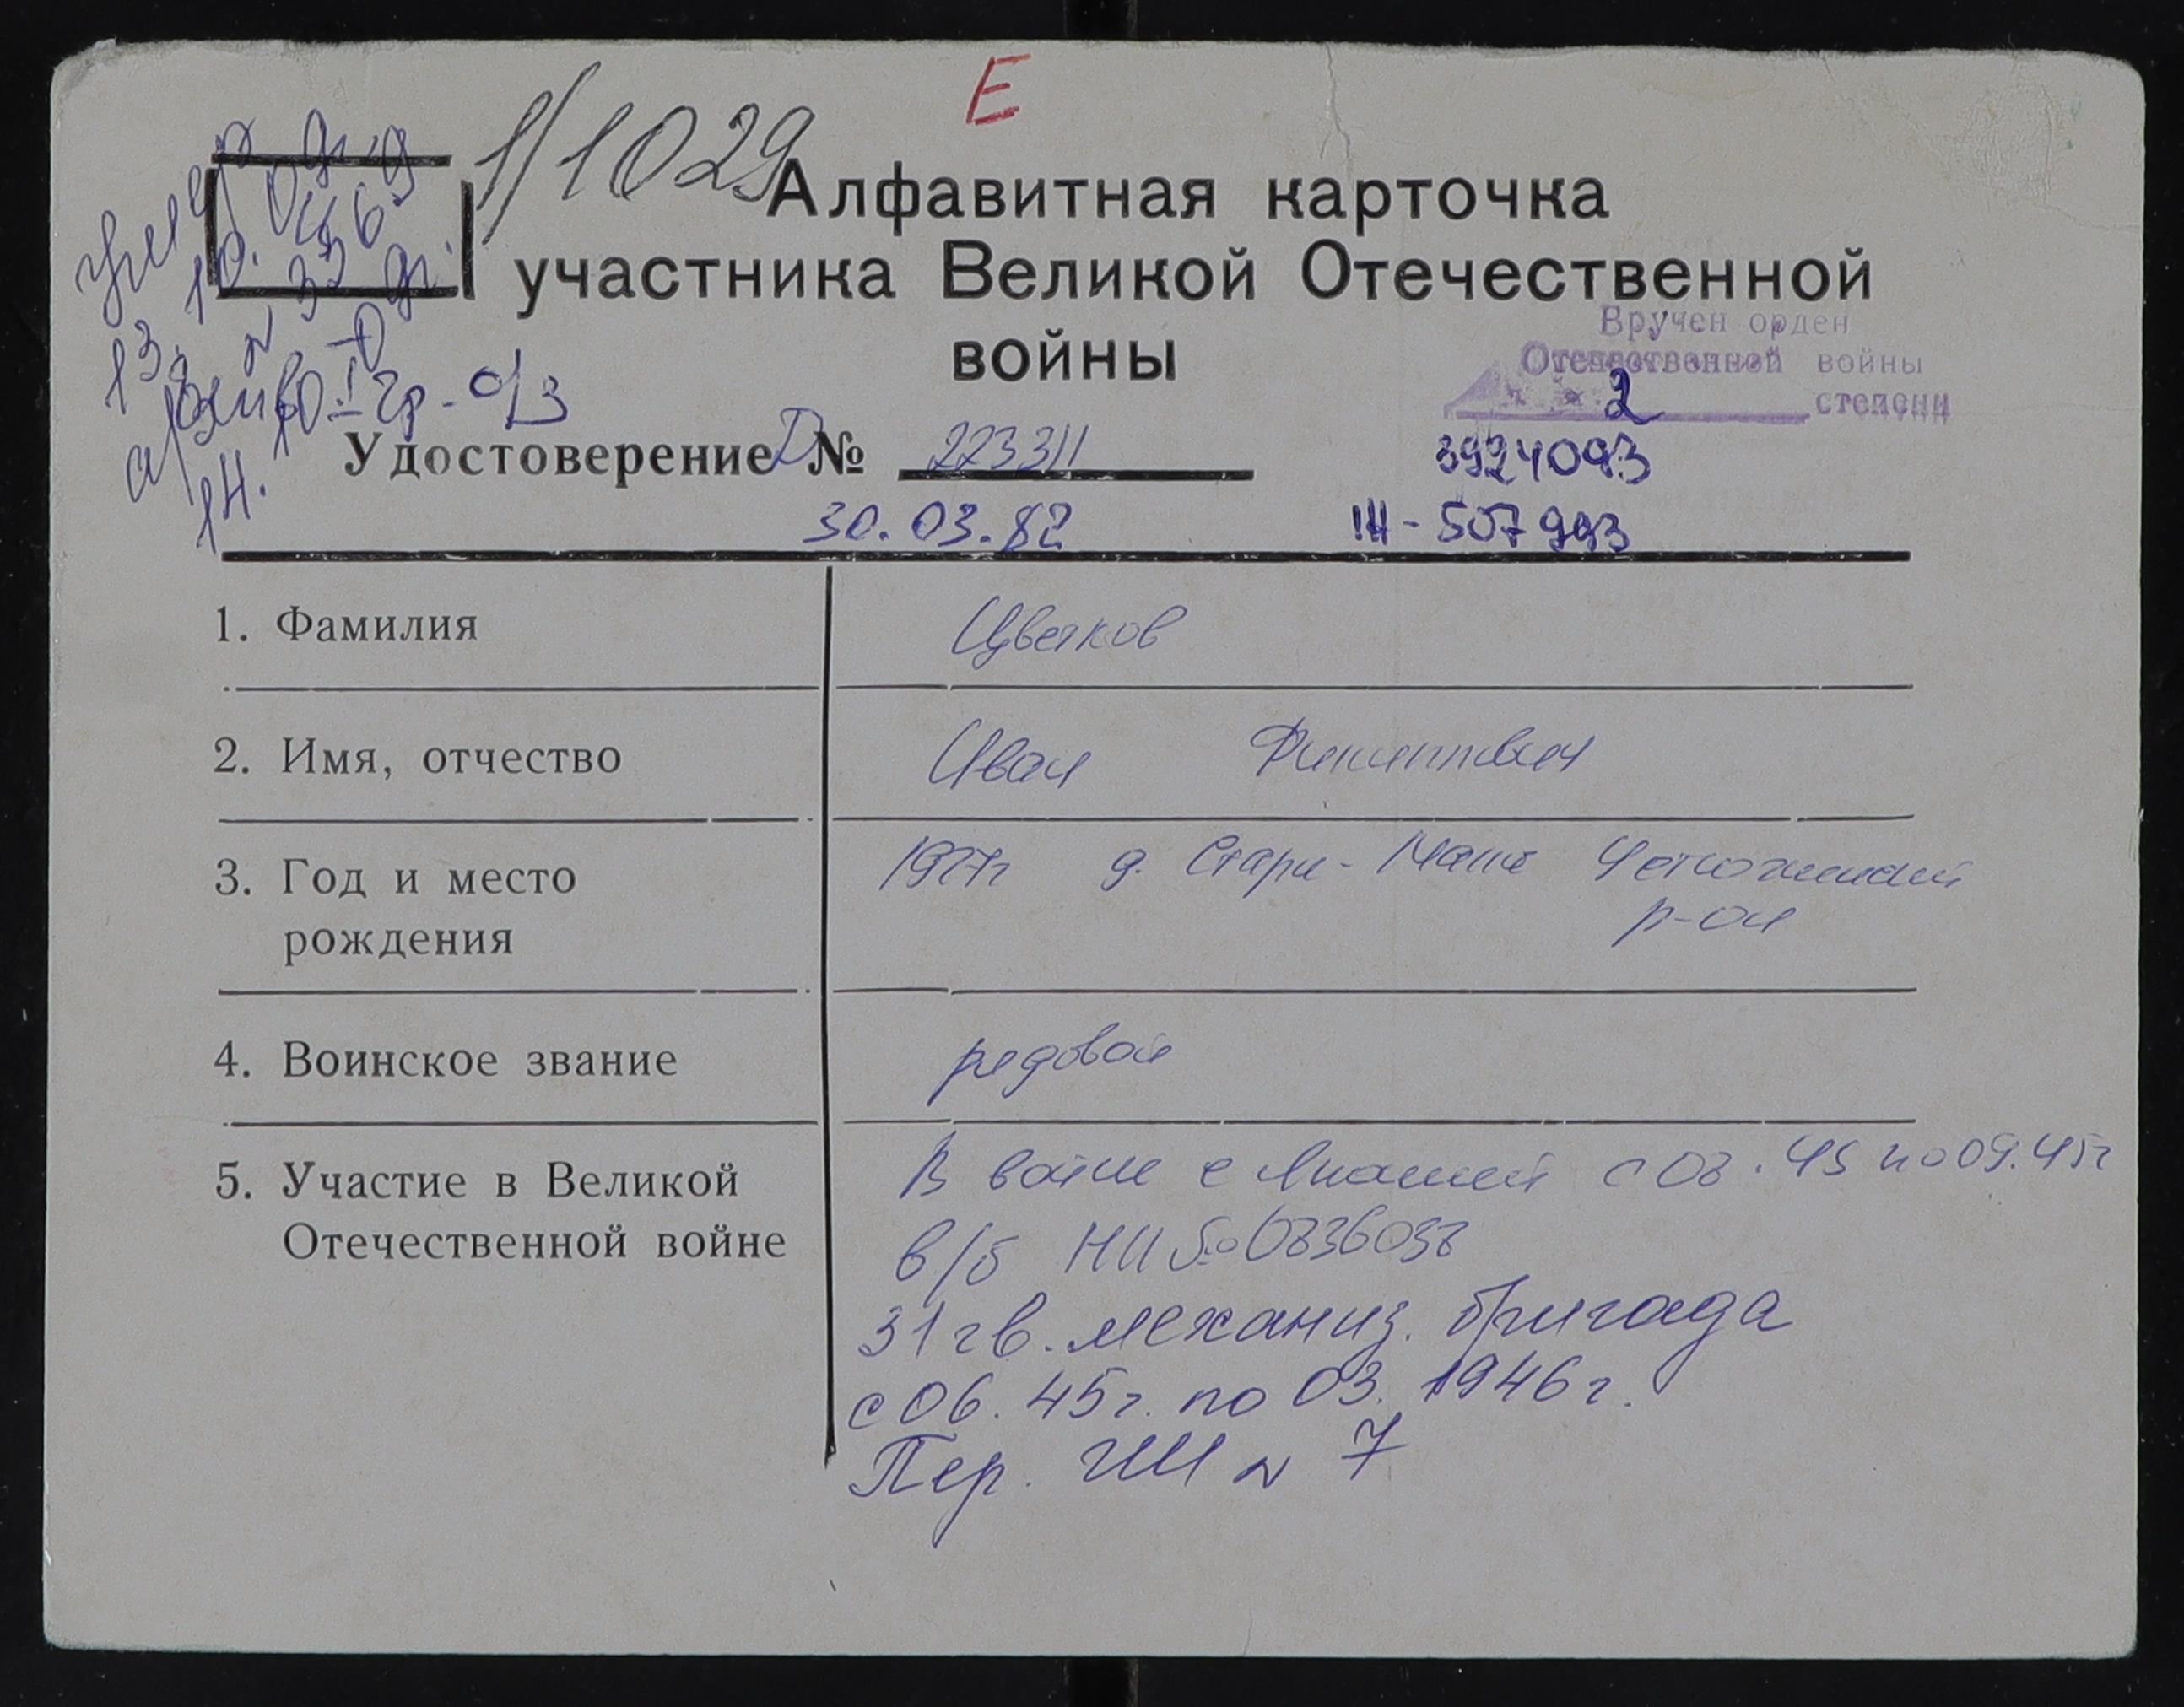 Е
1/1029
умер
13.10.09 г.
архив № 35
14.10.
Iгр-0/3
Алфавитная карточка
участника Великой Отечественной
войны
Вручен орден
Отечественной войны
2 степени
Удостоверение Д № 223311
3924093
30.03.82
507993
1. Фамилия Цветков
2. Имя, отчество Иван Филиппович
3. Год и место 1927г д. Стари-
рождения р-он
4. Воинское звание редовой
5. Участие в Великой В войне с Японией с 08.45 по 09.45г
Отечественной войне в/б НИ № 0836038
31 гв. механиз. бригада
с 06.45г. по 03.1946г.
Пер. № 7